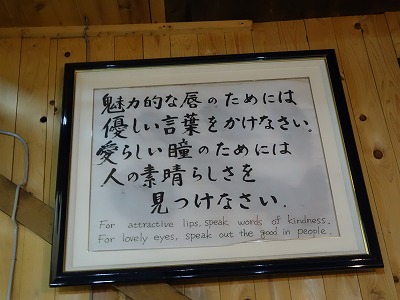 魅力的な唇のためには
優しい言葉をかけなさい。
愛らしい瞳のためには
人の素晴らしさを
見つけなさい.
For attractive lips, speak words of kindness.
For lovely eyes, speak out the good in people.